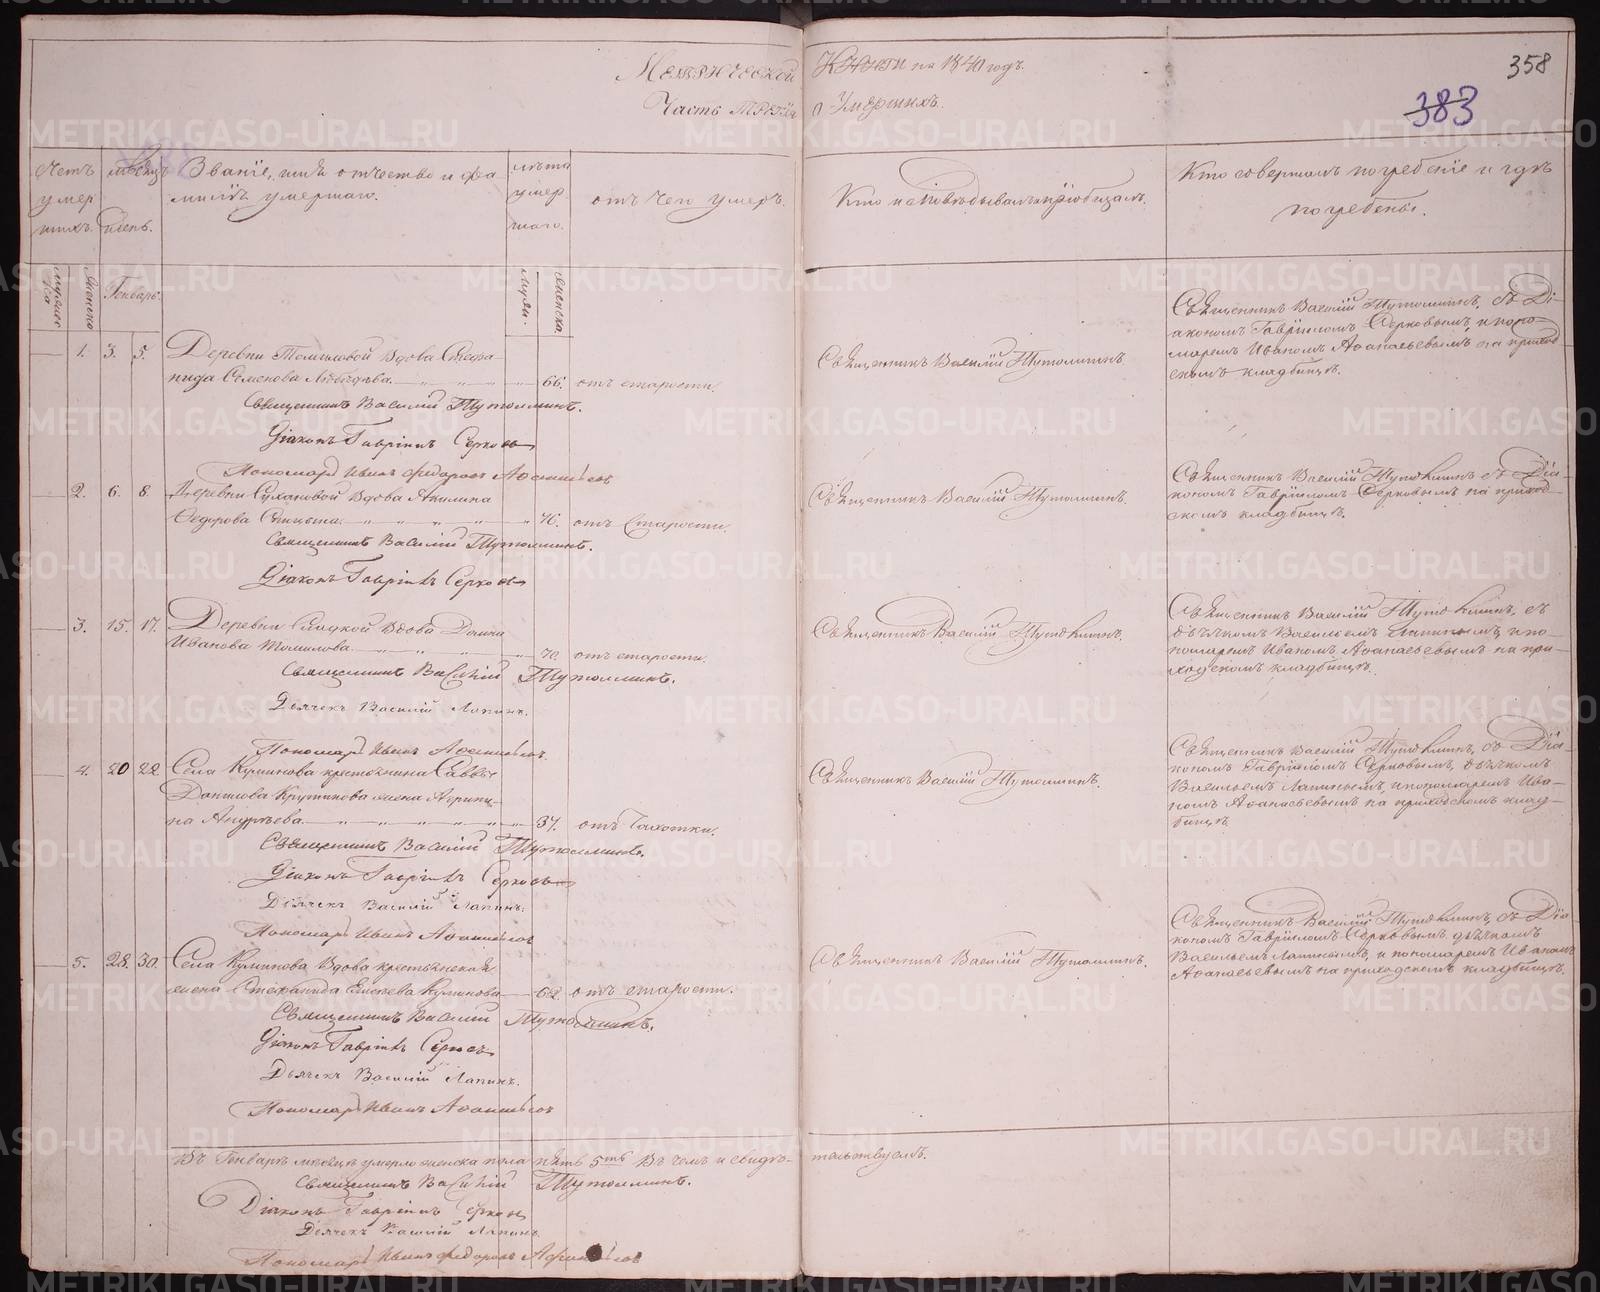 Метрической Книги на 1840 годъ.
358
Часть Третiя о Умершихъ.
383
Счетъ умершихъ.
Мѣсяцъ день.
Званiе, имя отчество и фамилiя умершаго.
Лѣта умершаго.
отъ чего умеръ.
Кто исповѣдывалъ и прiобщалъ.
Кто совершалъ погребенiе и гдѣ погребены.
мужеска
женска
Генварь.
мужск.
женска.
1. 3. 5.
Деревни Томиловой вдова Степа-
нида Семенова 66. отъ старости.
Священникъ Василiй Тутолминъ.
Дiаконъ Гаврiилъ Серковъ
Пономарь Иванъ Федоровъ Афанасьевъ
Священникъ Василiй Тутолминъ
Священникъ Василiй Тутолминъ, съ Дi-
акономъ Гаврiиломъ Серковымъ, и поно-
маремъ Иваномъ Афанасьевымъ на приход-
скомъ кладбищѣ.
2. 6. 8.
Деревни Сухановой вдова Акилина
Федорова 76. отъ Старости.
Священникъ Василiй Тутолминъ.
Дiаконъ Гаврiилъ Серковъ
Священникъ Василiй Тутолминъ.
Священникъ Василiй Тутолминъ съ Дiа-
кономъ Гаврiиломъ Серковымъ на приход-
скомъ кладбищѣ.
3. 15. 17.
Деревни Сладкой Вдова
Иванова Томилова 70. отъ старости.
Священникъ Василiй Тутолминъ.
Дьячекъ Василiй Лапинъ.
Пономарь Иванъ Афанасьевъ.
Священникъ Василiй Тутолминъ.
Священникъ Василiй Тутолминъ, съ
дьячкомъ Васильемъ Лапинымъ, и по-
номаремъ Иваномъ Афанасьевымъ на при-
ходскомъ кладбищѣ.
4. 20 22.
Села Куминова крестьянина Саввы
Данилова Крутикова жена Агрипи-
на Андреева 37. отъ Чахотки.
Священникъ Василiй Тутолминъ.
Дiаконъ Гаврiилъ Серковъ
Дьячекъ Василiй Лапинъ.
Пономарь Иванъ Афанасьевъ
Священникъ Василiй Тутолминъ.
Священникъ Василiй Тутолминъ, съ Дiа-
кономъ Гаврiиломъ Серковымъ, дьячкомъ
Васильемъ Лапинымъ, и пономаремъ Ива-
номъ Афанасьевымъ на приходскомъ клад-
бищѣ.
5. 28. 30.
Села Куминова Вдова крестьянская
жена Степанида Елисѣева Куминова 62. отъ старости.
Священникъ Василiй Тутолминъ.
Дiаконъ Гаврiилъ Серковъ
Дьячекъ Василiй Лапинъ.
Пономарь Иванъ Афанасьевъ
Священникъ Василiй Тутолминъ.
Священникъ Василiй Тутолминъ, съ Дiа-
кономъ Гаврiиломъ Серковымъ, дьячкомъ
Васильемъ Лапинымъ, и пономаремъ Иваномъ
Афанасьевымъ на приходскомъ кладбищѣ.
Въ Генварѣ мѣсяцѣ умерло женска пола пять 5ть Въ чемъ и свидѣ-
тельствуемъ.
Священникъ Василiй Тутолминъ.
Дiаконъ Гаврiилъ Серковъ
Дьячекъ Василiй Лапинъ.
Пономарь Иванъ Федоровъ Афанасьевъ
METRIKI.GASO-URAL.RU